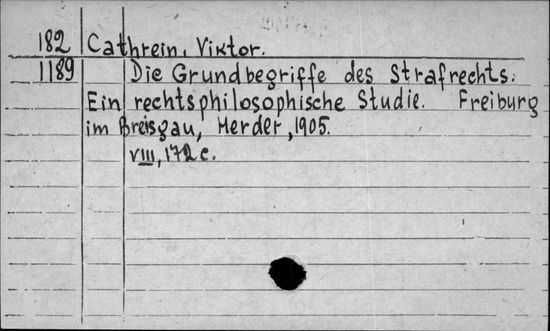 182 Cathrein, Viktor.
1189 Die Grundbegriffe des Strafrechts.
Ein rechtsphilosophische Studie. Freiburg
im Breisgau, Herder, 1905.
VIII, 172 c.